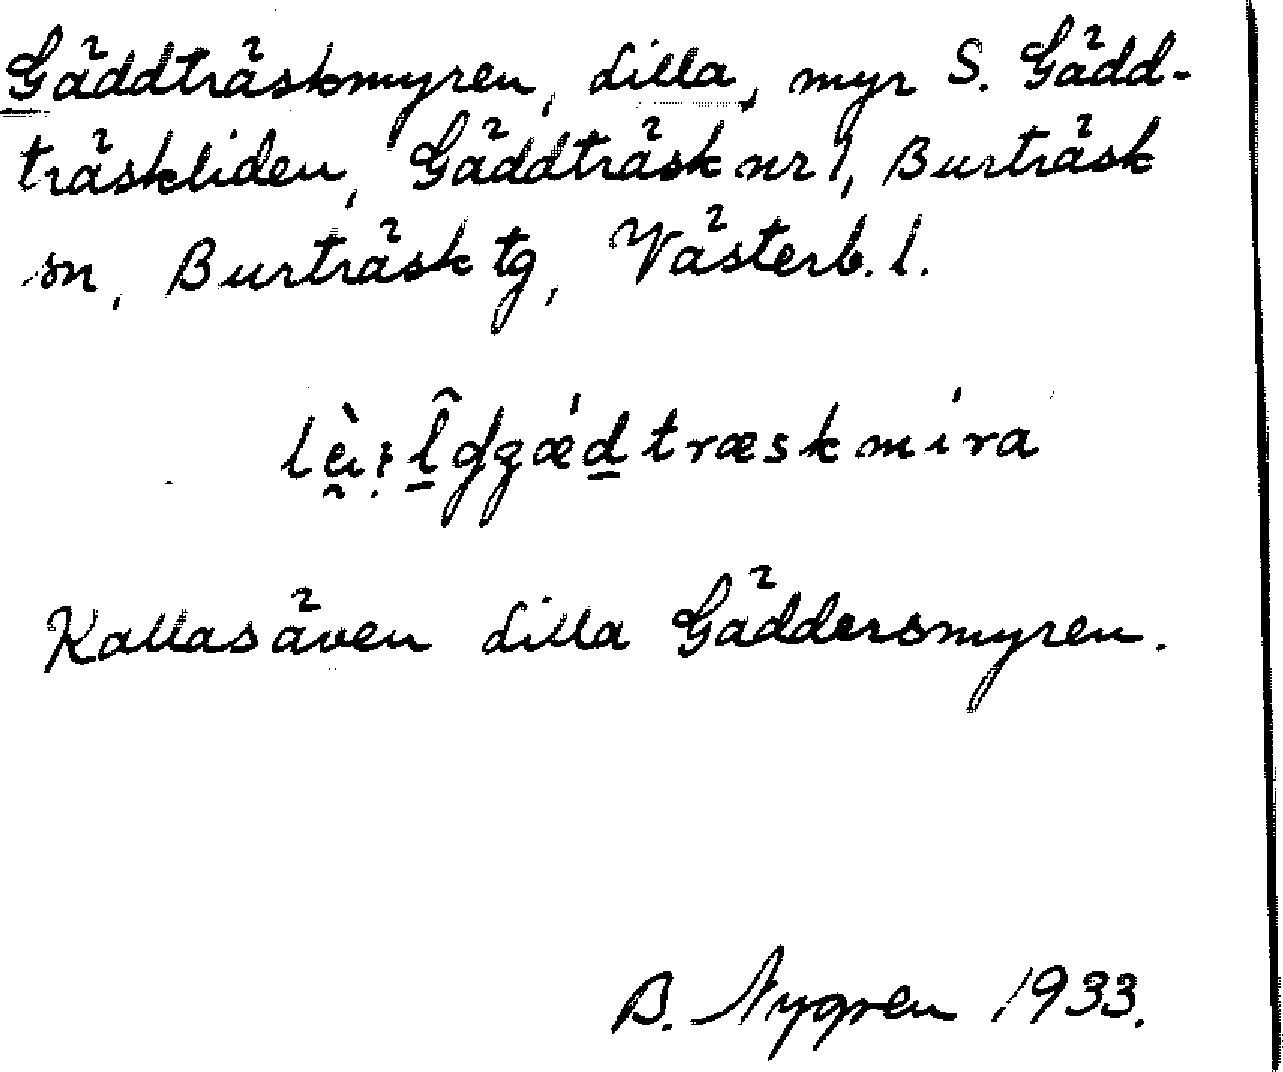 Gäddträskmyren, Lilla, myr S. Gädd-
träskliden, Gäddträsk nr 1, Burträsk
sn, Burträsk tg, Västerb. l.
Kallas även Lilla Gäddersmyren.
B. Nygren 1933.